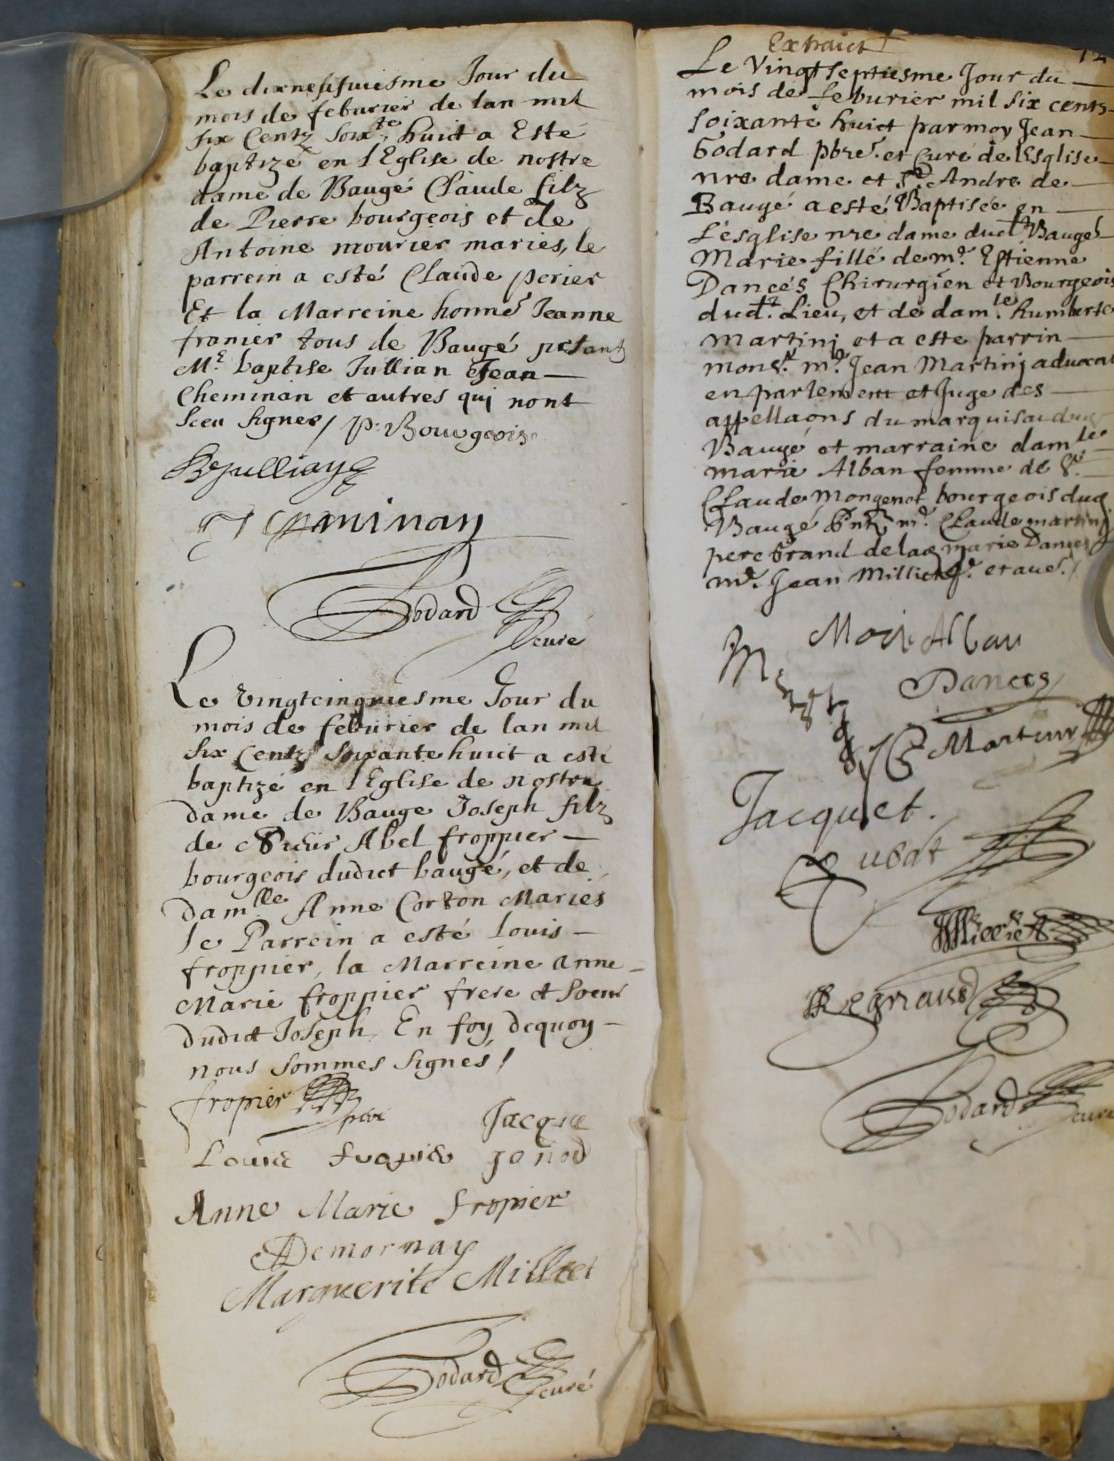 Le dixneufuiesme Jour du
mois de feburier de lan mil
six Centz soixte. huict a Esté
baptizé en l'Eglise de nostre
dame de Baugé Claude filz
de Pierre bourgeois et de
Antoine mourier mariés, le
parrein a esté Claude perier
Et la Marreine honnê Jeanne
franier tous de Baugé psant
Mr. baptise Jullian Jean —
Cheminan et autres qui nont
sceu signer / P. Bourgeois
B Julliay
J Cheminan
Godard
curé
Le vingtcinquiesme Jour du
mois de feburier de lan mil
six Centz soixante huict a esté
baptizé en l'Eglise de nostre
dame de Bauge Joseph filz
de Sieur Abel froppier —
bourgeois dudict baugé, et de
damlle Anne Corton Mariés
le Parrein a esté Louis —
froppier, la Marreine Anne —
Marie froppier frere et soeur
dudict Joseph, En foy dequoy —
nous sommes signés /
fropier
pere
Jacque
Louis fropier gonod
Anne Marie fropier
Demornay
Marguerite Milliet
Godard
curé
Extraict
Le Vingt septiesme Jour du —
mois de feburier mil six cents
soixante huict par moy Jean —
Godard pbre. et Curé de l'Esglise
nre dame et St. Andre de —
Bauge a esté Baptisée en —
L'ésglise nre dame dudt Baugé
Marie fille de mr. Estienne
Dancés Chirurgien et Bourgeois
dudt. Lieu, et de damle. humberte
Martinj et a este parrin —
monsr. mr. Jean Martinj aduocat
en parlement et Juge des —
appellaons du marquisat dud
Baugé et marraine damle
marie Alban femme de Sr.
Claude Mongenot bourgeois dud
Baugé mr. Claude martinj
pere Grand de lad marie Dances
mr. Jean Milliet et
Marie Alban
Dances
Martini
Jacquet.
Cusat
Milliet
Regnaud
Godard
curé